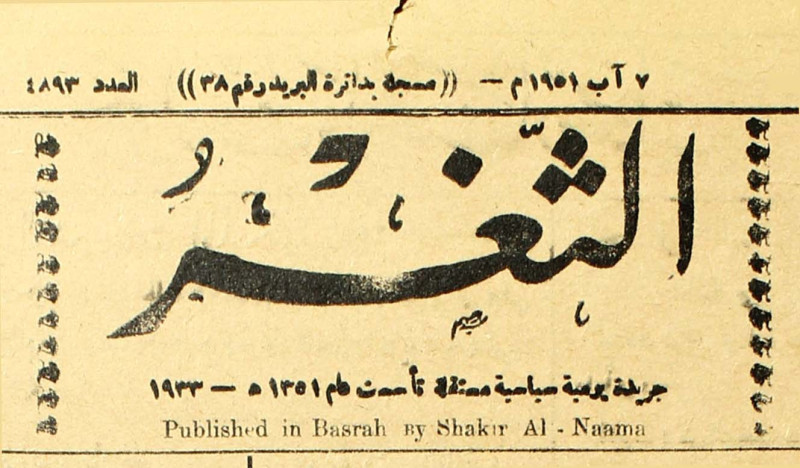 ٧ آب ١٩٥١ م — ((مسجلة بدائرة البريد رقم ٣٨)) العدد ٤٨٩٣
الثَّغْرُ
جريدة يومية سياسية مستقلة تأسست عام ١٣٥١ ه — ١٩٣٣
Published in Basrah By Shakir Al - Naama